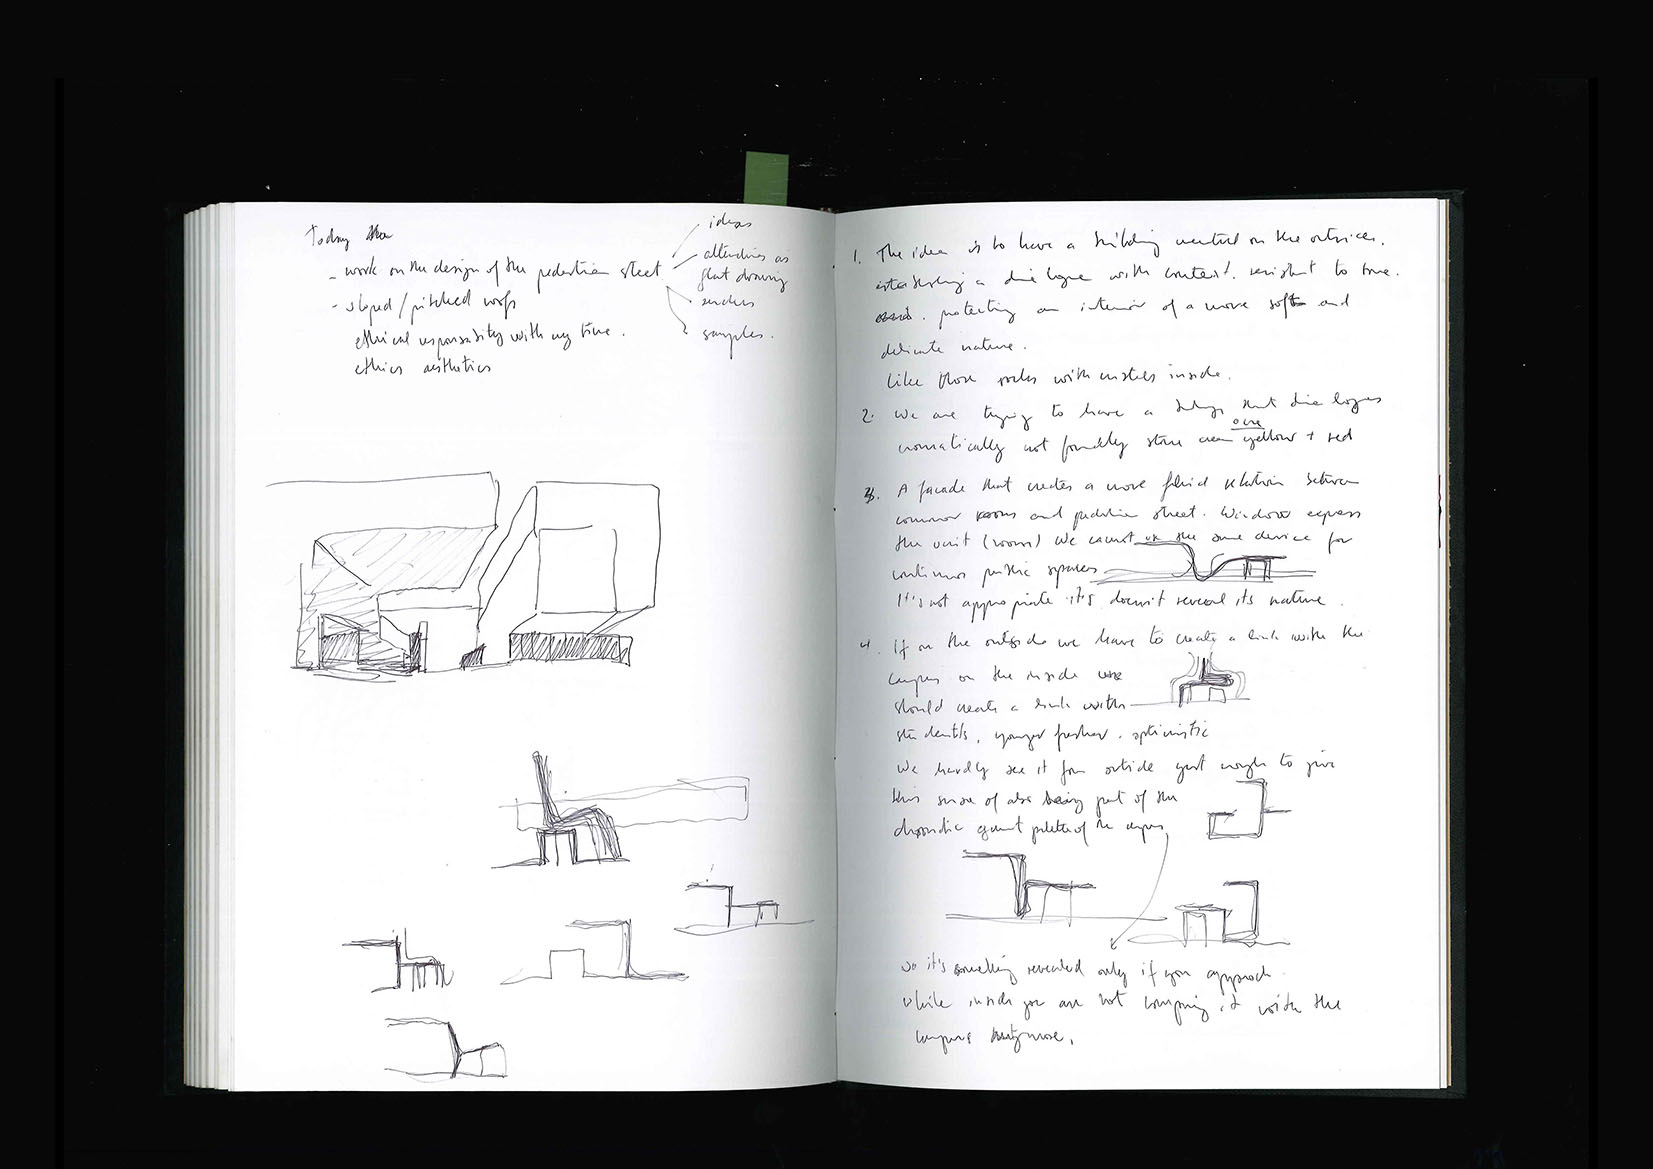 Today
- work on the design of the pedestrian street
- sloped / pitched roofs
ethical responsability with my time.
ethics aesthetics
ideas
as
flat drawing
renders
samples.
1. The idea is to have a building neutral on the outside,
establishing a dialogue with context. resistant to time.
protecting an interior of a more soft and
delicate nature.
Like those rocks with cristals inside.
2. We are trying to have a that dialogues
cromatically not formally stone ocre yellow + red
3. A facade that creates a more fluid relation between
common rooms and pedestrian street. Window express
the unit (room) We cannot use the same device for
continuos public spaces
It's not appropiate it's doesn't reveal its nature.
4. If on the outside we have to create a link with the
campus on the inside we
should create a link with
students, younger fresher. optimistic
We hardly see it from outside just enough to give
this sense of also being part of the
chromatic palette of the campus
so it's something revealed only if you approach
while inside you are not comparing it with the
campus anymore.